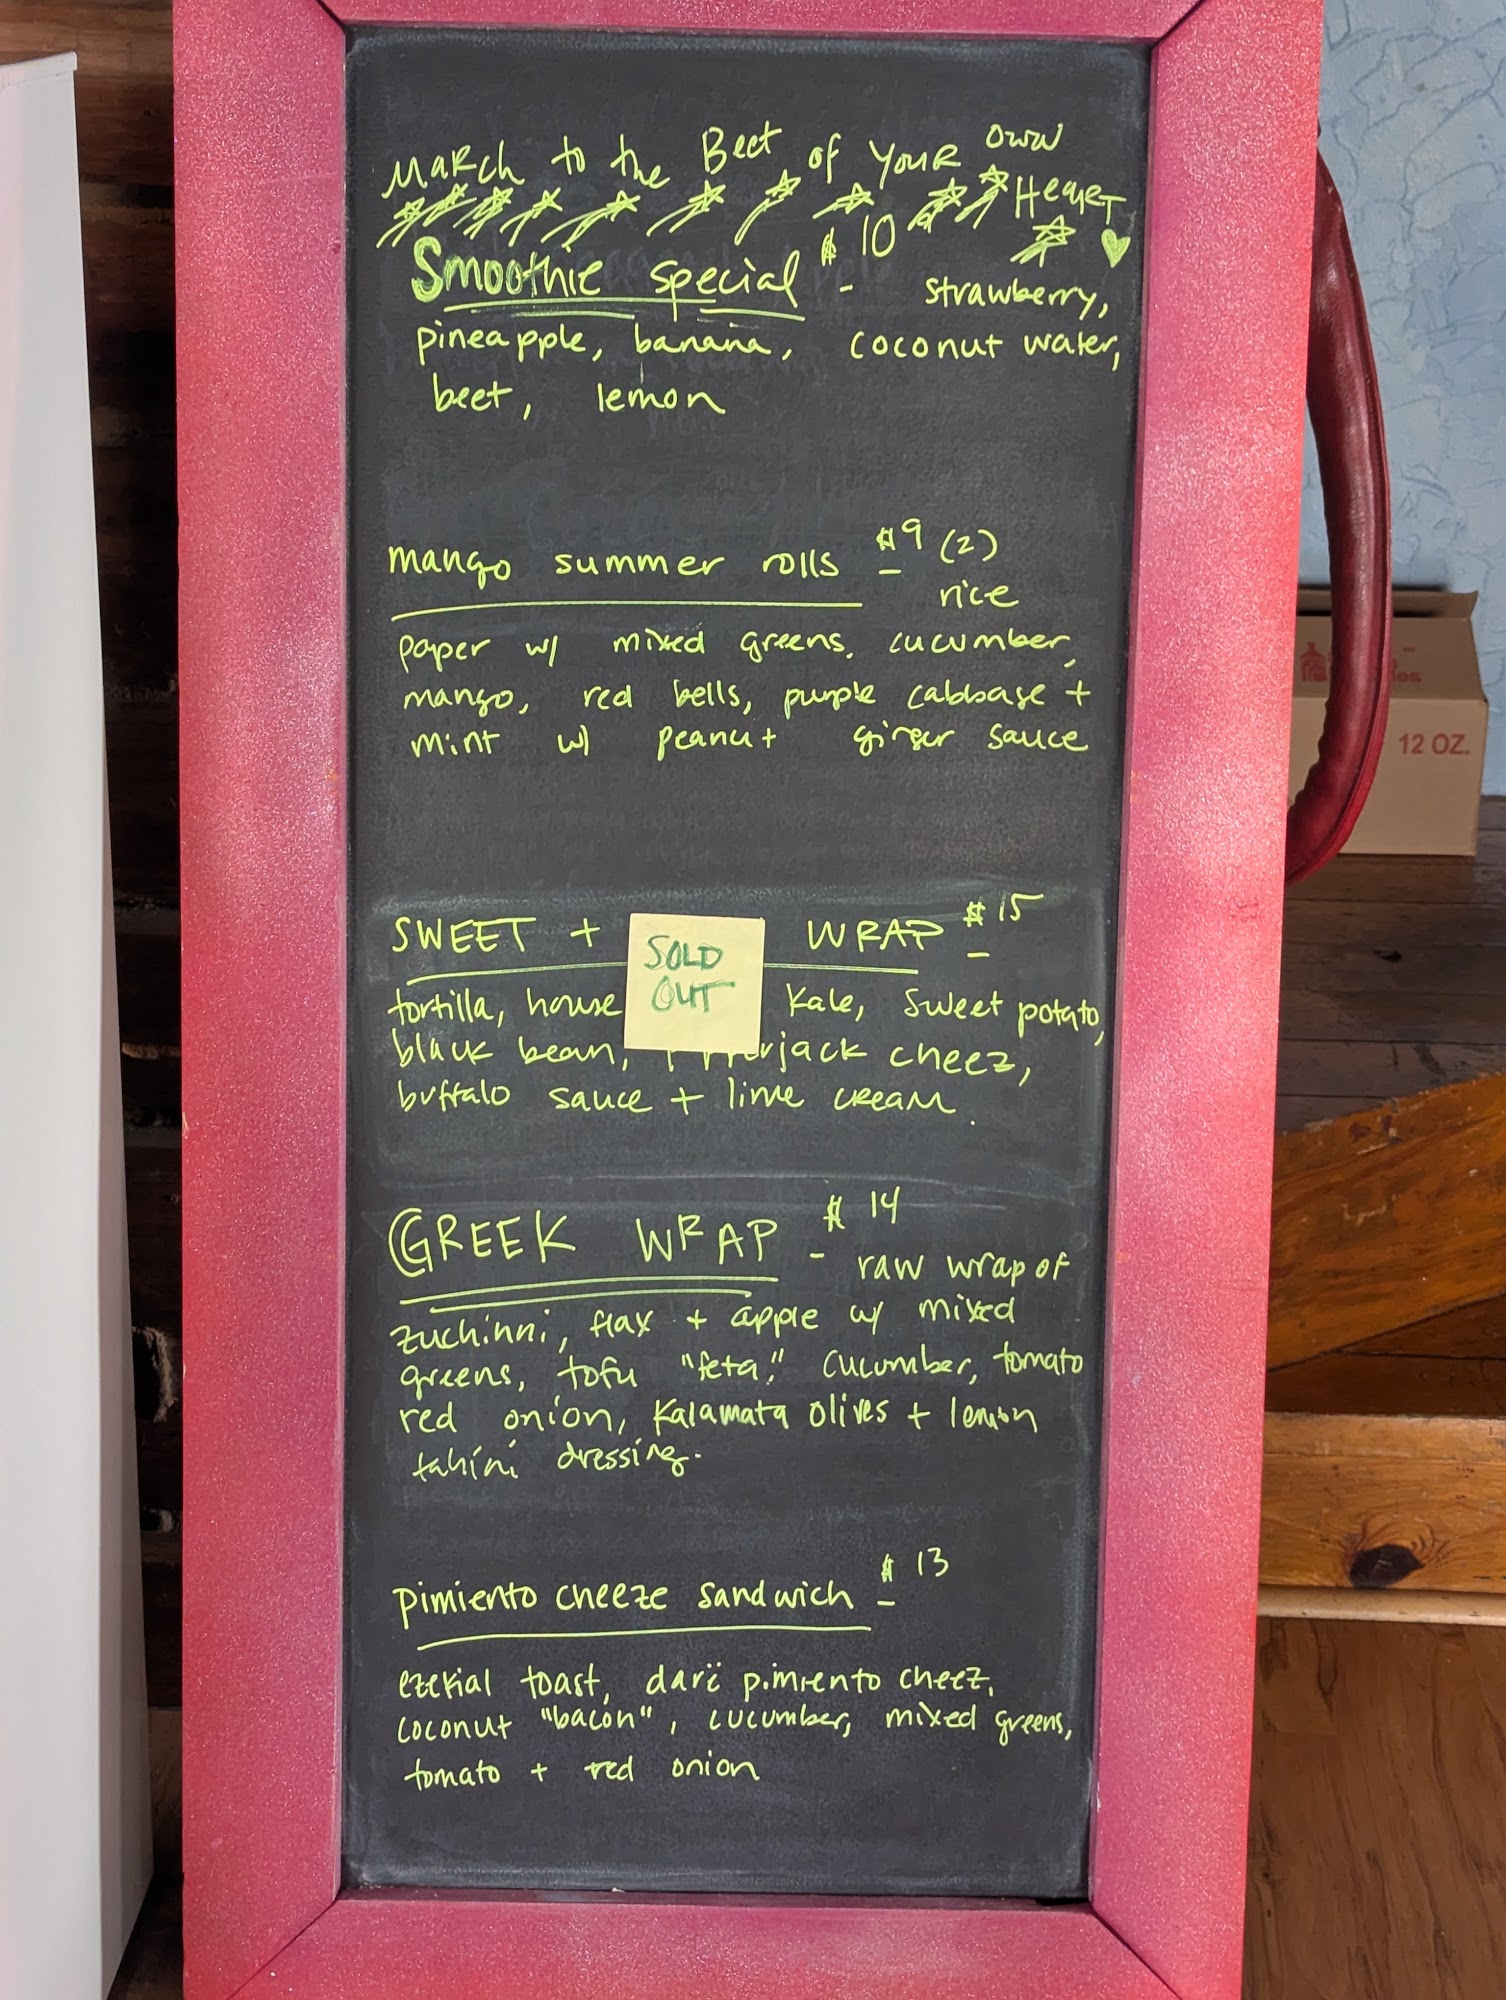 March to the Beet of Your Own
Heart
Smoothie special $10 - strawberry,
pineapple, banana, coconut water,
beet, lemon
mango summer rolls - $9 (2)
rice
paper w/ mixed greens, cucumber,
mango, red bells, purple cabbage +
mint w/ peanut ginger sauce
SWEET + WRAP - $15
SOLD
OUT
tortilla, house kale, sweet potato,
black bean, jack cheez,
buffalo sauce + lime cream.
GREEK WRAP - $14
raw wrap of
zuchinni, flax + apple w/ mixed
greens, tofu "feta", cucumber, tomato
red onion, Kalamata olives + lemon
tahini dressing.
pimiento cheeze sandwich - $13
ezekial toast, darë pimiento cheez,
coconut "bacon", cucumber, mixed greens,
tomato + red onion
12 OZ.